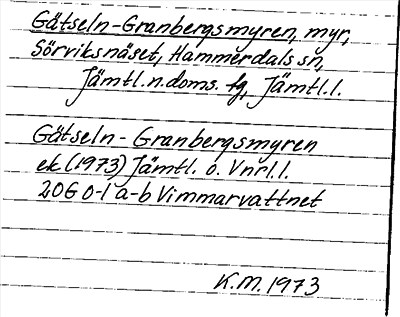 Gåtseln-Granbergsmyren, myr,
Sörviksnäset, Hammerdals sn,
Jämtl.n.doms. fg, Jämtl.l.
Gåtseln - Granbergsmyren
ek (1973) Jämtl. o. Vnrl.l.
20G 0-1 a-b Vimmarvattnet
K.M. 1973